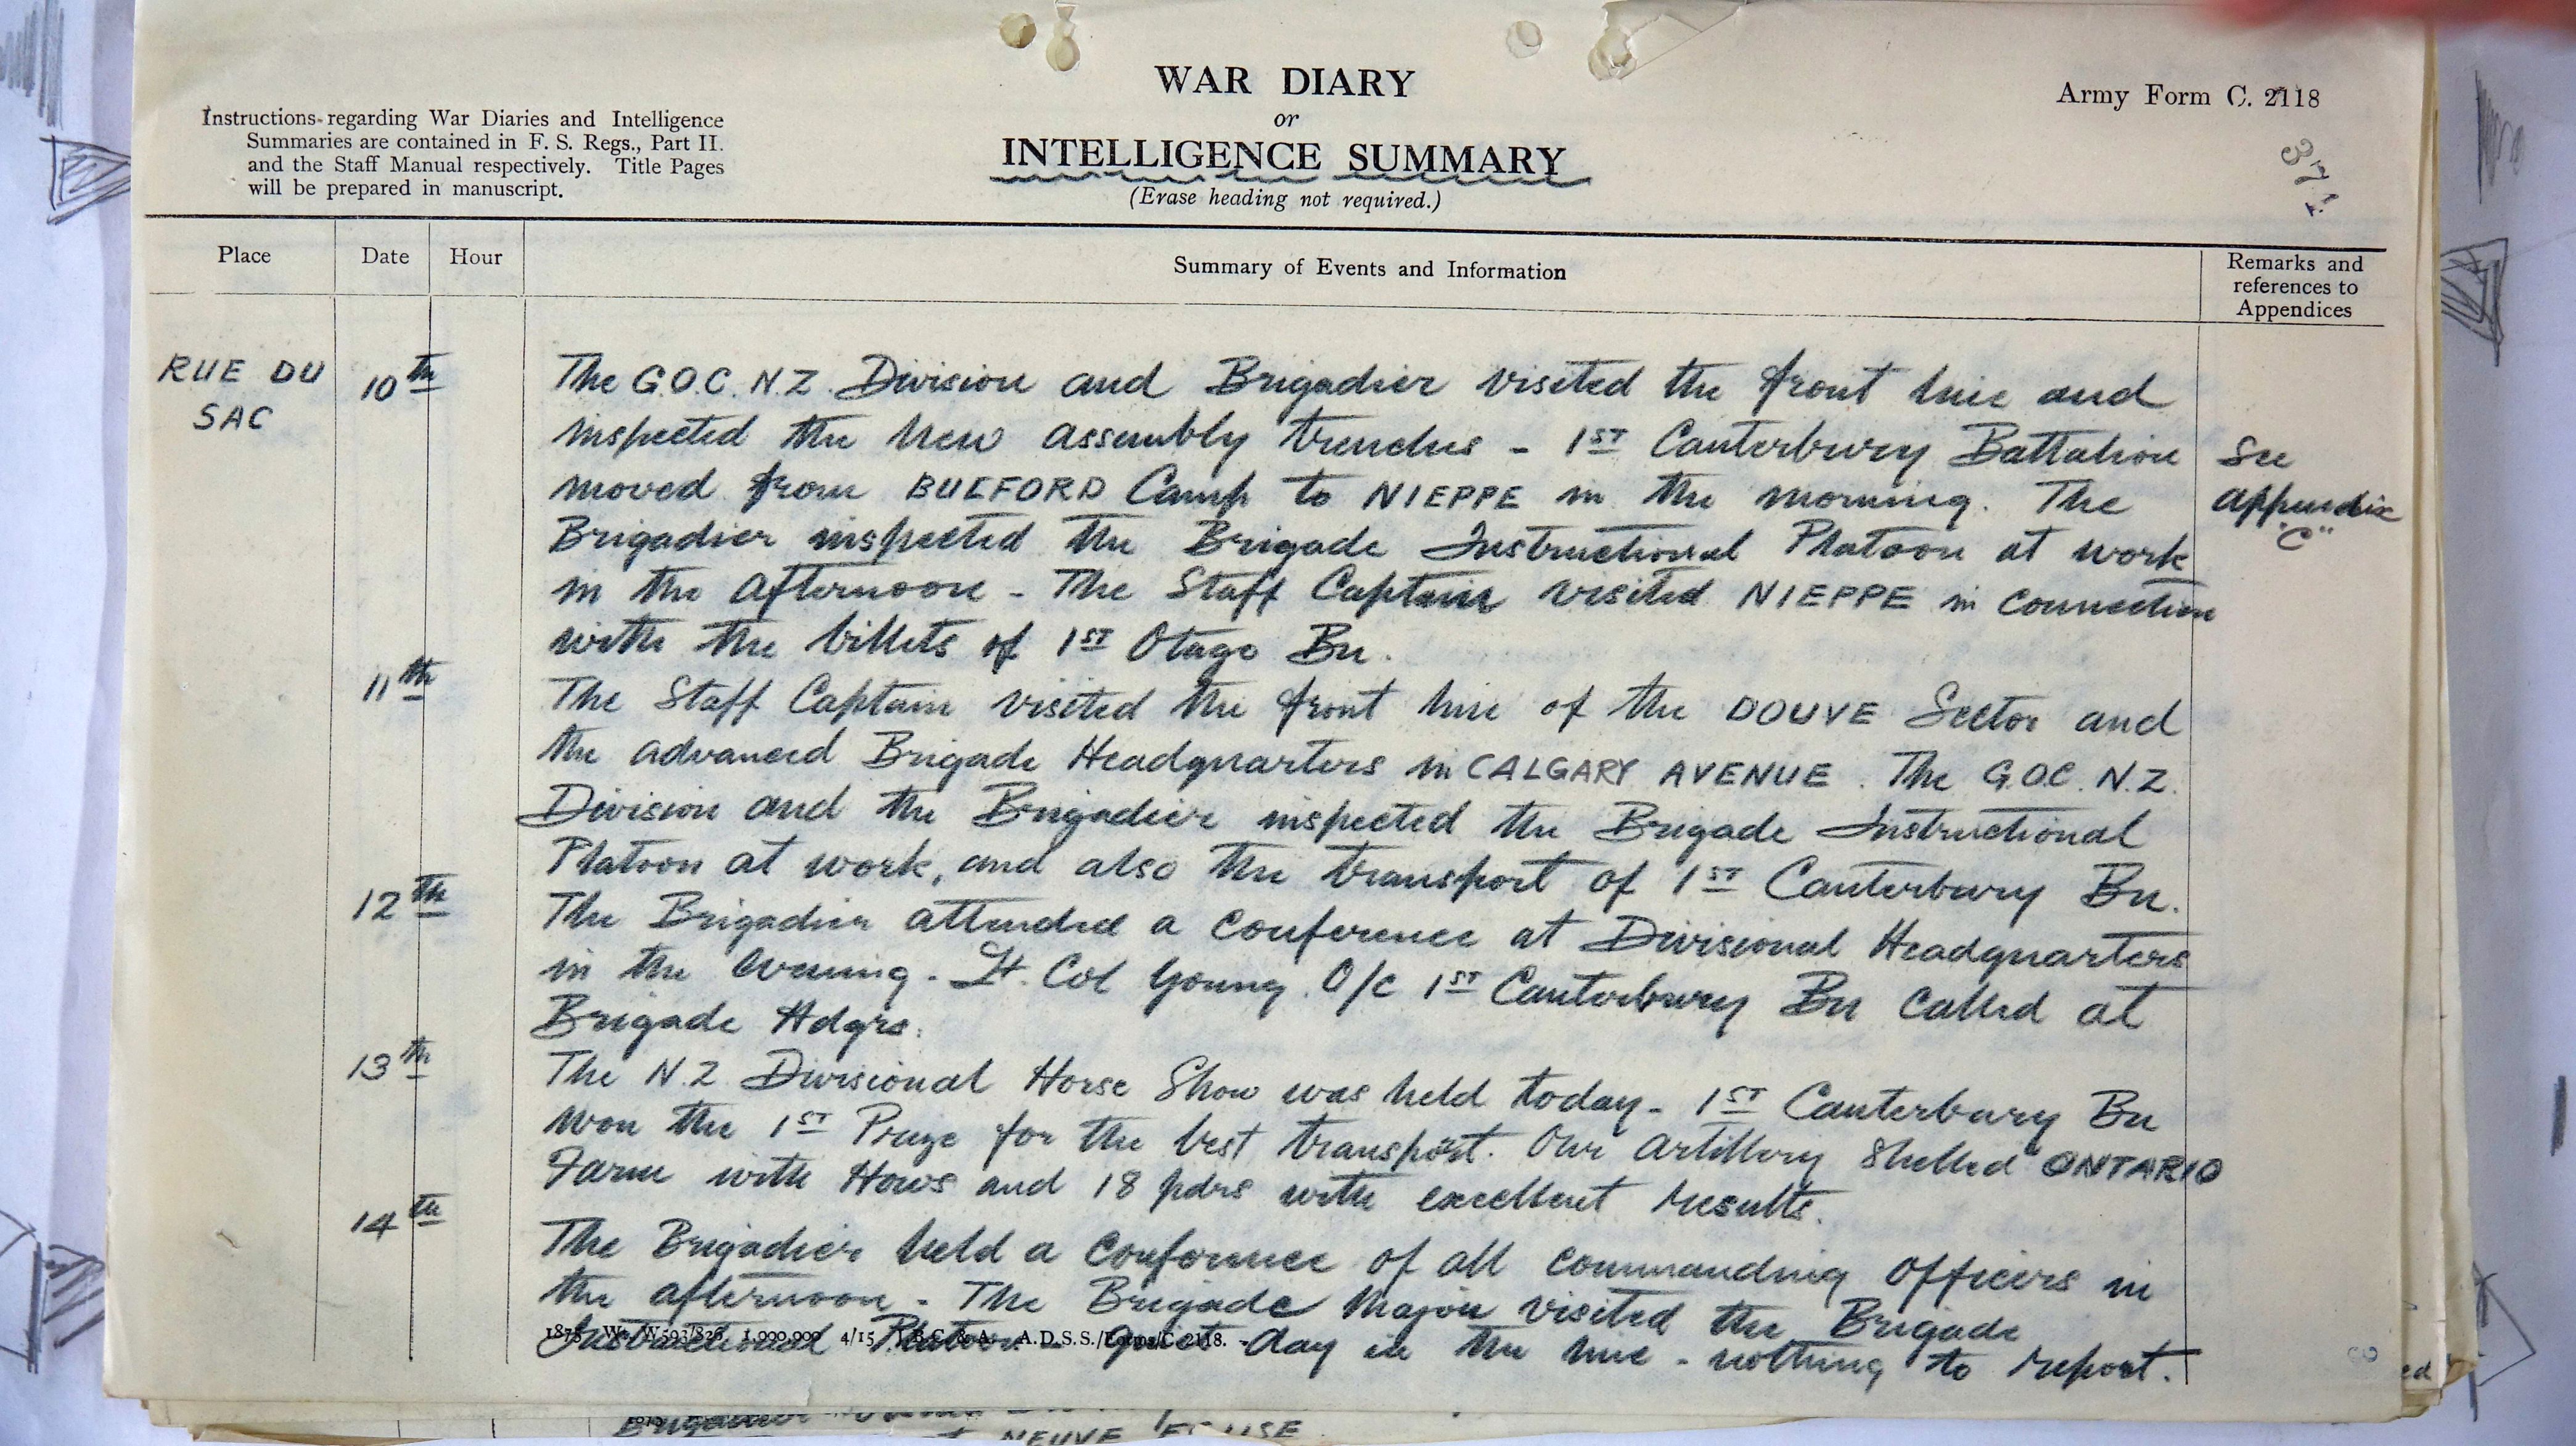 WAR DIARY
or
INTELLIGENCE SUMMARY
(Erase heading not required.)
Army Form C. 2118
371.
Instructions regarding War Diaries and Intelligence
Summaries are contained in F. S. Regs., Part II.
and the Staff Manual respectively. Title Pages
will be prepared in manuscript.
Place
Date
Hour
Summary of Events and Information
Remarks and
references to
Appendices
RUE DU
SAC
10th
The G.O.C. N.Z. Division and Brigadier visited the front line and
inspected the new assembly trenches - 1ST Canterbury Battalion
moved from BULFORD Camp to NIEPPE in the morning. The
Brigadier inspected the Brigade Instructional Platoon at work
in the afternoon - The Staff Captain visited NIEPPE in connection
with the billets of 1ST Otago Bn.
See
appendix
"C"
11th
The Staff Captain visited the front line of the DOUVE Sector and
the advanced Brigade Headquarters in CALGARY AVENUE. The G.O.C. N.Z.
Division and the Brigadier inspected the Brigade Instructional
Platoon at work, and also the transport of 1ST Canterbury Bn.
12th
The Brigadier attended a conference at Divisional Headquarters
in the evening - Lt. Col Young. O/C 1ST Canterbury Bn called at
Brigade Hdqrs.
13th
The N.Z. Divisional Horse Show was held today - 1ST Canterbury Bn
won the 1ST Prize for the best transport. Our artillery shelled ONTARIO
Farm with Hows and 18 pdrs with excellent results.
14th
The Brigadier held a conference of all commanding officers in
the afternoon - The Brigade Major visited the Brigade
Instructional Platoon - Quiet day in the line - nothing to report.
1875 Wt. W593/826 1,000,000 4/15 J.B.C. & A. A.D.S.S./Forms/C. 2118.
Brigadier
NEUVE EGLISE
ed